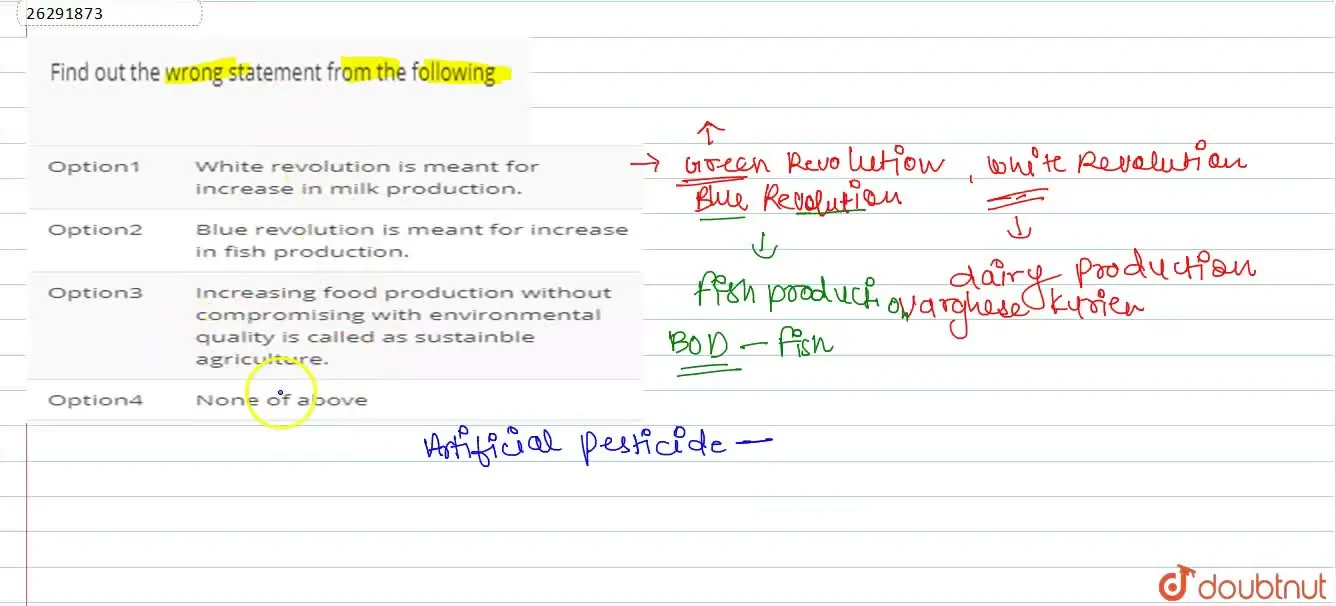 26291873
Find out the wrong statement from the following
Option1 White revolution is meant for
increase in milk production.
Option2 Blue revolution is meant for increase
in fish production.
Option3 Increasing food production without
compromising with environmental
quality is called as sustainble
agriculture.
Option4 None of above
Green Revolution, White Revolution
Blue Revolution
fish production
dairy production
varghese Kurien
BOD - fish
Artificial pesticide -
doubtnut